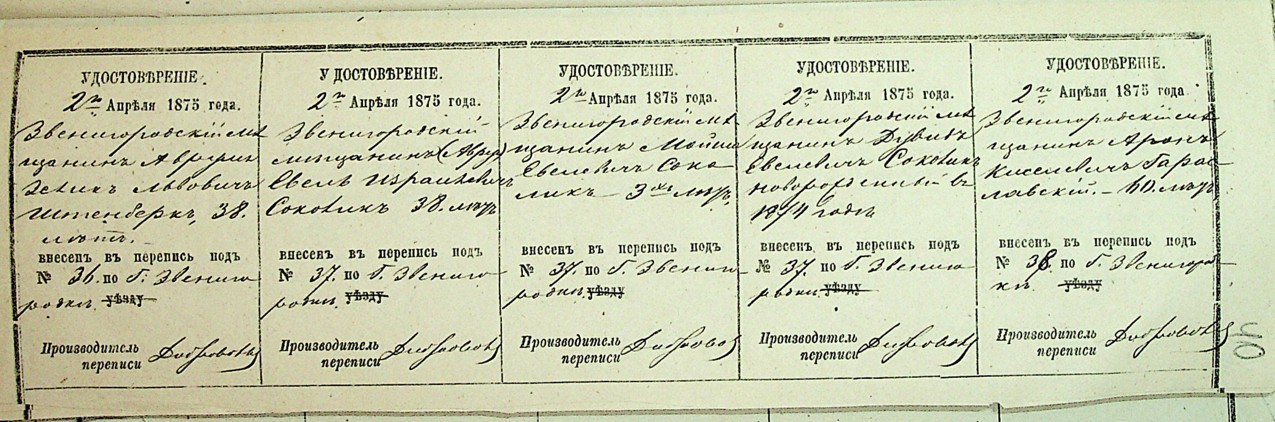 УДОСТОВѢРЕНІЕ.
2го Апрѣля 1875 года.
Звенигородскій мѣ
щанинъ Аврумъ
Ицикъ Львовичъ
Штенберкъ, 38.
лѣтъ.
внесенъ въ перепись подъ
№ 36. по Г. Звениго
родки уѣзду
Производитель
переписи
УДОСТОВѢРЕНІЕ.
2го Апрѣля 1875 года.
Звенигородскій
мѣщанинъ
Евель Израилевичъ
Соколикъ 38. лѣтъ
внесенъ въ перепись подъ
№ 37. по Г. Звениго
родки уѣзду
Производитель
переписи
УДОСТОВѢРЕНІЕ.
2го Апрѣля 1875 года.
Звенигородскій мѣ
щанинъ Мойша
Евелевичъ Соко
ликъ - 3хъ лѣтъ,
внесенъ въ перепись подъ
№ 37. по Г. Звениго
родки уѣзду
Производитель
переписи
УДОСТОВѢРЕНІЕ.
2го Апрѣля 1875 года.
Звенигородскій мѣ
щанинъ Дувидъ
Евелевичъ Соколикъ
новорожденный въ
1874 году
внесенъ въ перепись подъ
№ 37. по Г. Звениго
родки уѣзду
Производитель
переписи
УДОСТОВѢРЕНІЕ.
2го Апрѣля 1875 года
Звенигородскій мѣ
щанинъ Аронъ
Киселевичъ Гара
лавскій. - 60. лѣтъ
внесенъ въ перепись подъ
№ 38. по Г. Звенигород
ки уѣзду
Производитель
переписи
40